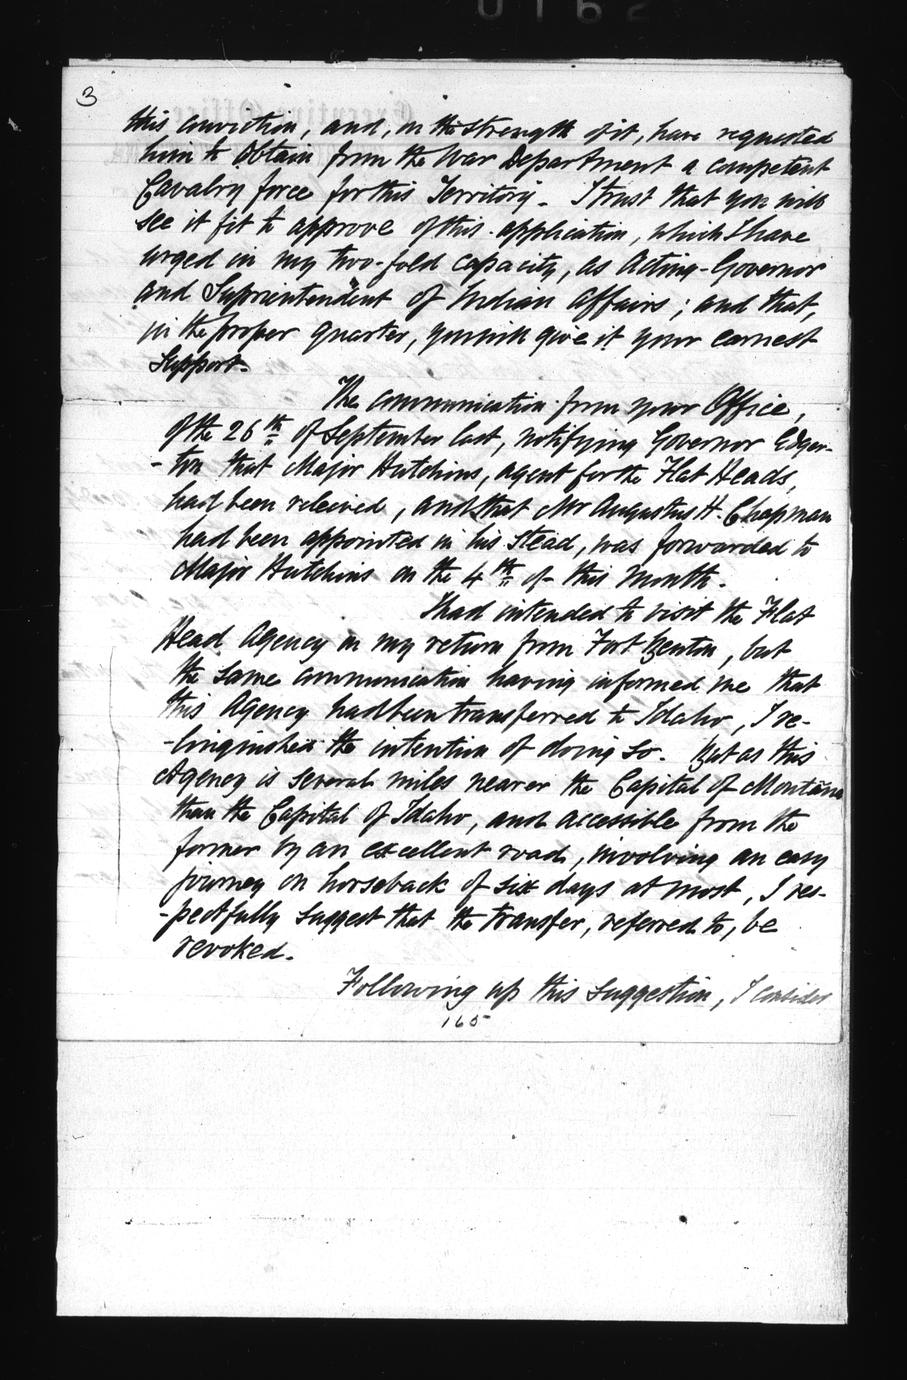 0162
3
this conviction, and, on the strength of it, have requested
him to obtain from the War Department a competent
Cavalry force for this Territory. I trust that you will
see it fit to approve of this application, which I have
urged in my two-fold capacity, as Acting-Governor
and Suprintendent of Indian Affairs; and that,
in the proper quarter, you will give it your earnest
Support.
The communication from your Office,
of the 26th of September last, notifying Governor Edger-
-ton that Major Hutchins, agent for the Flat Heads,
had been relieved, and that Mr Augustus H. Chapman
had been appointed in his stead, was forwarded to
Major Hutchins on the 4th of this Month.
I had intended to visit the Flat
Head Agency in my return from Fort Benton, but
the same communication having informed me that
this Agency had been transferred to Idaho, I re-
-linquished the intention of doing so. But as this
Agency is several miles nearer the Capital of Montana
than the Capital of Idaho, and accessible from the
former by an excellent road, involving an easy
journey on horseback of six days at most, I res-
-pectfully suggest that the transfer, referred to, be
revoked.
Following up this suggestion, I consider
165